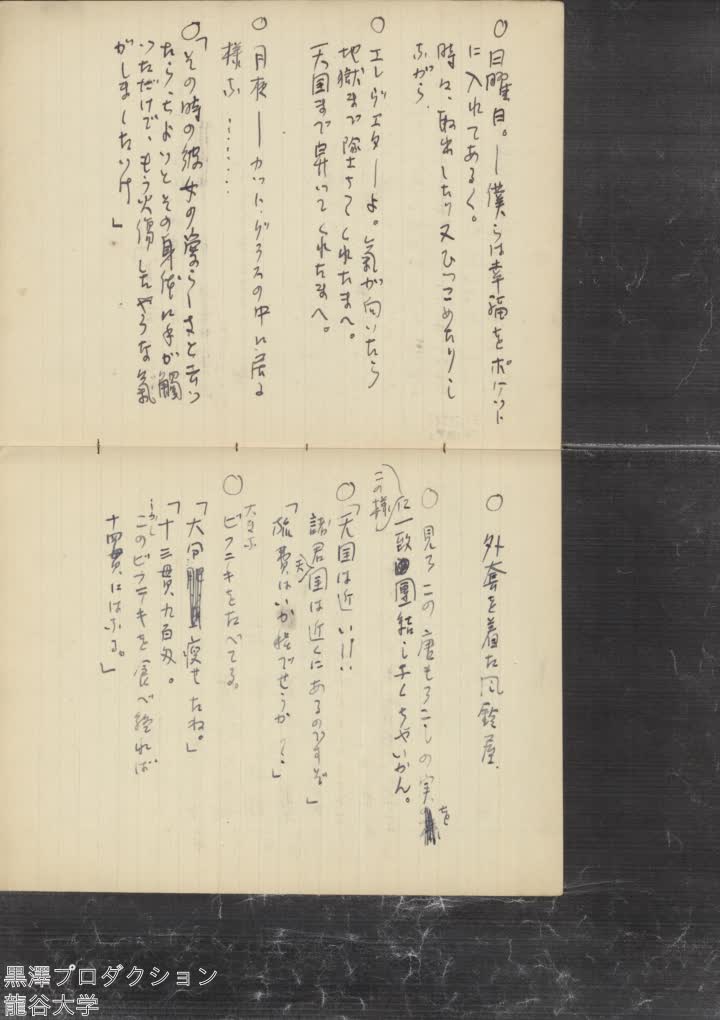 ○日曜日。―僕らは幸福をポケット
に入れてあるく。
時に、取出したり又ひっこめたりし
ながら.
○エレヴェターよ。氣が向いたら
地獄まで墜ちてくれたまへ。
天国まで昇いてくれたまへ。
○月夜―カット・グラスの中に居る
様な………
○「その時の彼女の愛らしさと云つ
たら、ちよいとその身体に手が觸
つただけで、もう火傷したやうな氣
がしましたいけ」
○外套を着た風鈴屋.
○見ろこの唐もろこしの実を
この様に一致團結しなくちやいかん。
○「天国は近い!!
諸君天国は近くにあるのですぞ」
「旅費はいか程でせうか?」
○大きなビフテキをたべてる。
「大分瘦せたね。」
「十三貫九百匁。
しかしこのビフテキを食べ終れば
十四貫にはなる。」
黒澤プロダクション
龍谷大学